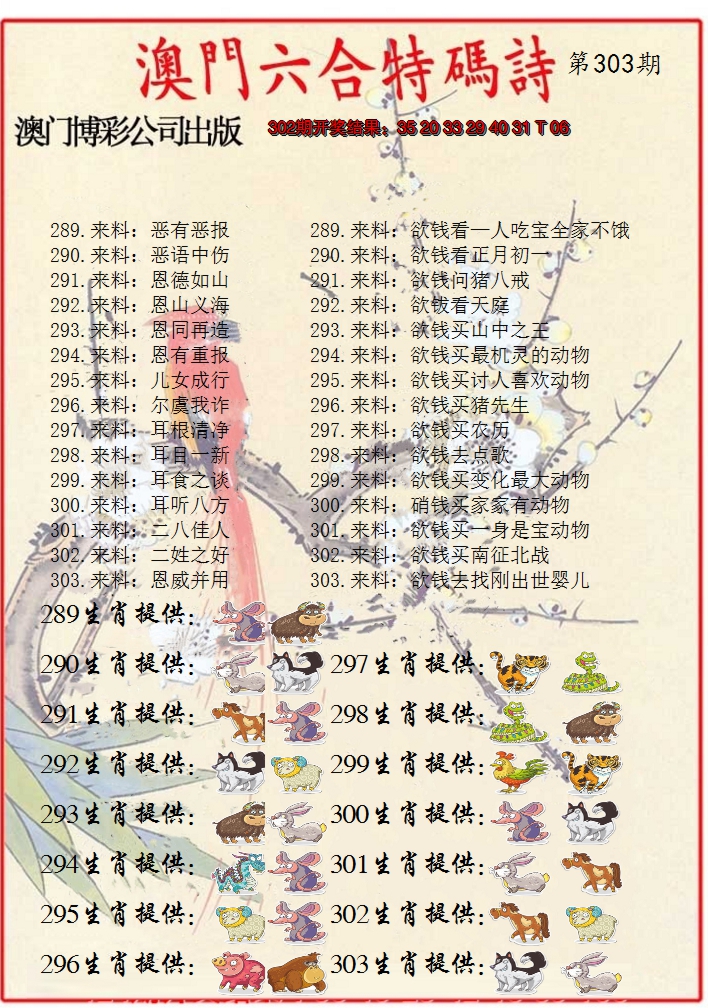 澳門六合特碼詩 第303期
澳门博彩公司出版 302期开奖结果：35 20 33 29 40 31 T 06
289.来料：恶有恶报 289.来料：欲钱看一人吃宝全家不饿
290.来料：恶语中伤 290.来料：欲钱看正月初一
291.来料：恩德如山 291.来料：欲钱问猪八戒
292.来料：恩山义海 292.来料：欲钱看天庭
293.来料：恩同再造 293.来料：欲钱买山中之王
294.来料：恩有重报 294.来料：欲钱买最机灵的动物
295.来料：儿女成行 295.来料：欲钱买讨人喜欢动物
296.来料：尔虞我诈 296.来料：欲钱买猪先生
297.来料：耳根清净 297.来料：欲钱买农历
298.来料：耳目一新 298.来料：欲钱去点歌
299.来料：耳食之谈 299.来料：欲钱买变化最大动物
300.来料：耳听八方 300.来料：硝钱买家家有动物
301.来料：二八佳人 301.来料：欲钱买一身是宝动物
302.来料：二姓之好 302.来料：欲钱买南征北战
303.来料：恩威并用 303.来料：欲钱去找刚出世婴儿
289生肖提供：
290生肖提供： 297生肖提供：
291生肖提供： 298生肖提供：
292生肖提供： 299生肖提供：
293生肖提供： 300生肖提供：
294生肖提供： 301生肖提供：
295生肖提供： 302生肖提供：
296生肖提供： 303生肖提供：